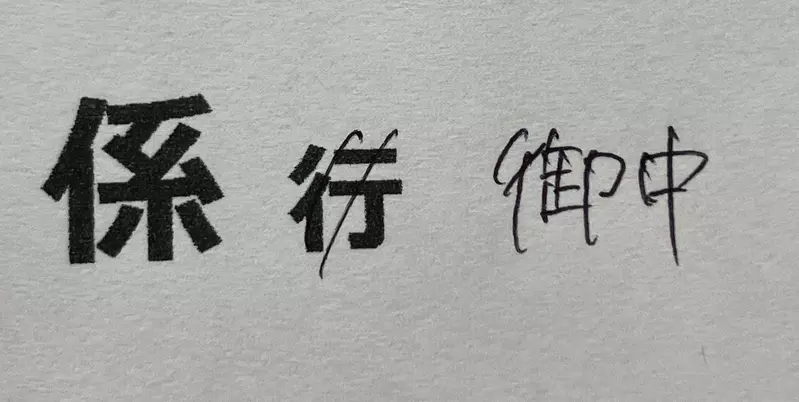 係 行 御中